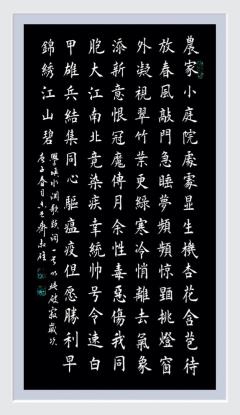 農家小庭院處處显生機杏花含苞待
放春風敲門急睡夢頻頻驚醒挑燈窗
外凝視翠竹葉更綠寒冷悄離去氣象
添新意恨冠魔傳月余性毒惡傷我同
胞大江南北竟染疾幸統帅号令速白
甲雄兵結集同心驅瘟疫但愿勝利早
錦綉江山碧
歲次
庚子春月